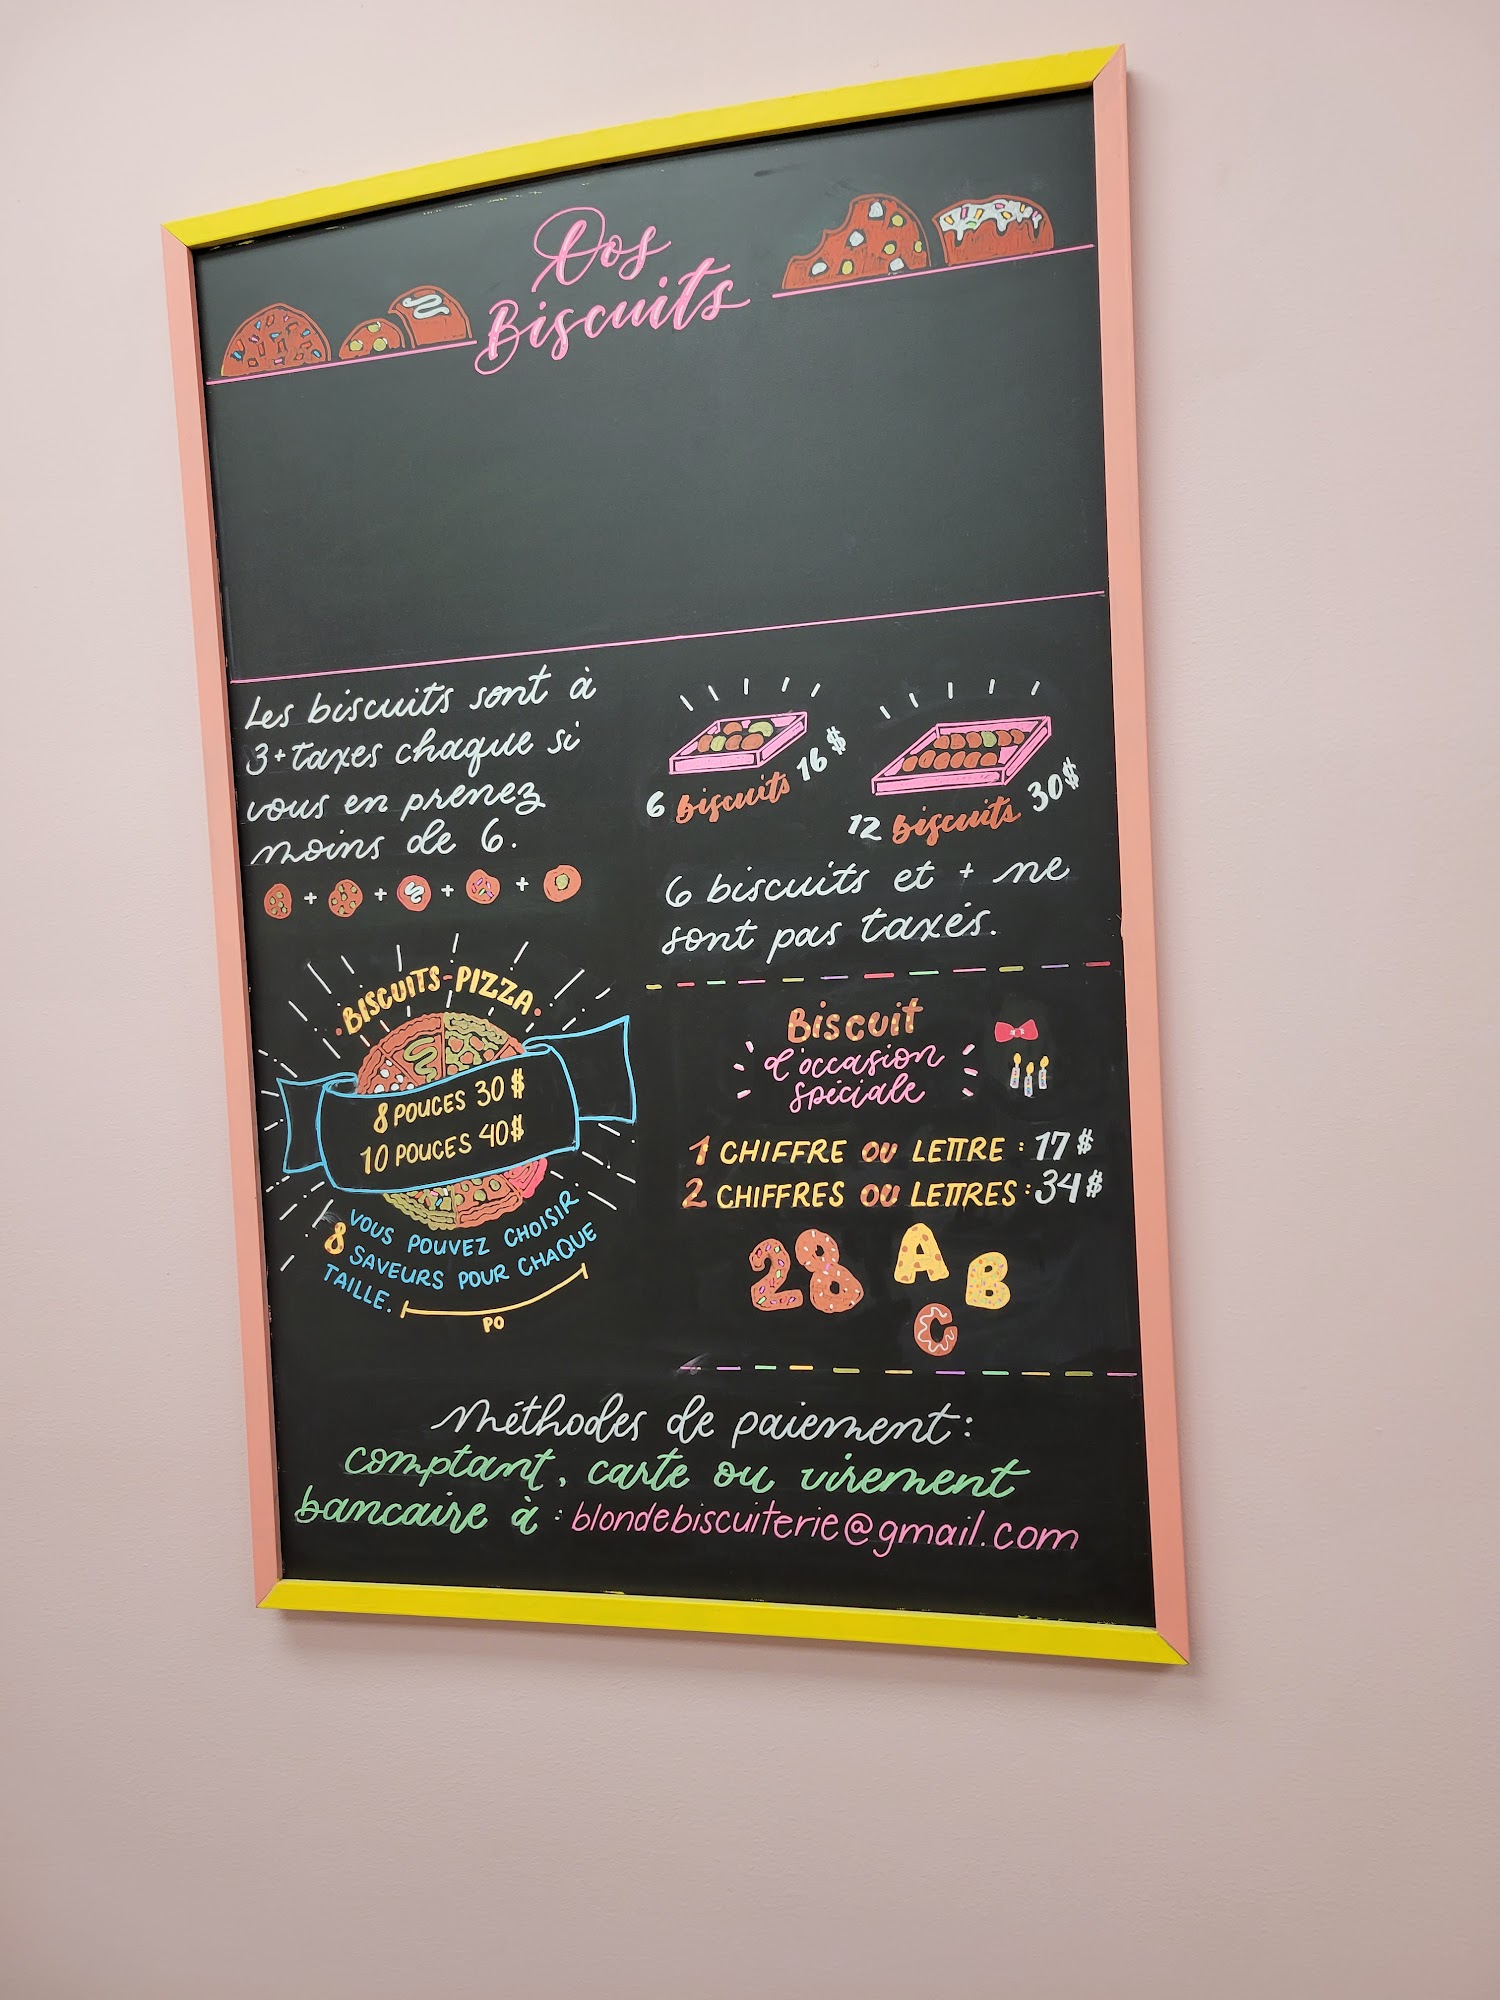 Dos
Biscuits
Les biscuits sont à
3+taxes chaque si
vous en prenez
moins de 6.
+ + + +
6 Biscuits 16$
12 Biscuits 30$
6 biscuits et + ne
sont pas taxés.
·BISCUITS-PIZZA·
8 POUCES 30$
10 POUCES 40$
VOUS POUVEZ CHOISIR
8 SAVEURS POUR CHAQUE
TAILLE.
PO
Biscuit
d'occasion
spéciale
1 CHIFFRE OU LETTRE : 17$
2 CHIFFRES OU LETTRES : 34$
28 A B
C
Méthodes de paiement:
comptant, carte ou virement
bancaire à : blondebiscuiterie@gmail.com